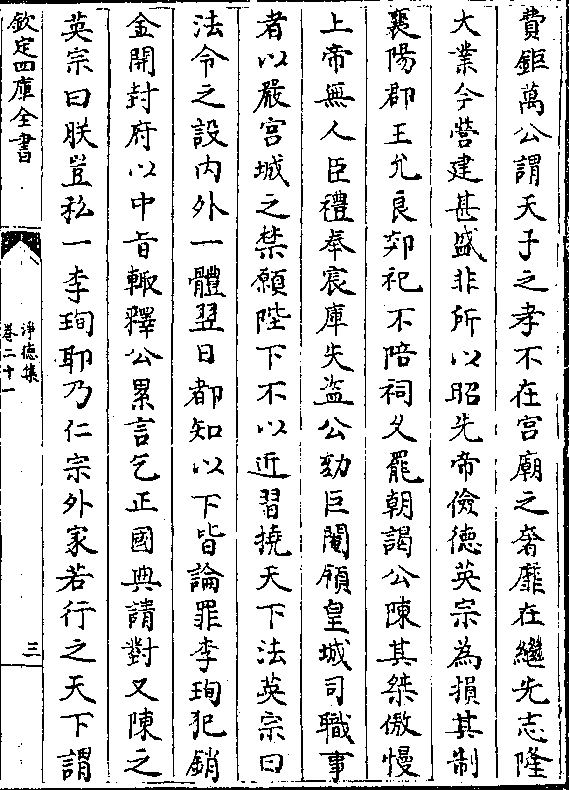 費鉅萬公謂天子之孝不在宫廟之奢靡在繼先志隆
大業今營建甚盛非所以昭先帝儉德英宗為損其制
襄陽郡王允良郊祀不陪祠又罷朝謁公陳其桀傲慢
上帝無人臣禮奉宸庫失盗公劾巨閹領皇城司職事
者以嚴宫城之禁願陛下不以近習撓天下法英宗曰
法令之設内外一體翌日都知以下皆論罪李珣犯銷
金開封府以中旨輙釋公累言乞正國典請對又陳之
英宗曰朕豈私一李珣耶乃仁宗外家若行之天下謂
欽定四庫全書
淨德集
卷二十一
三